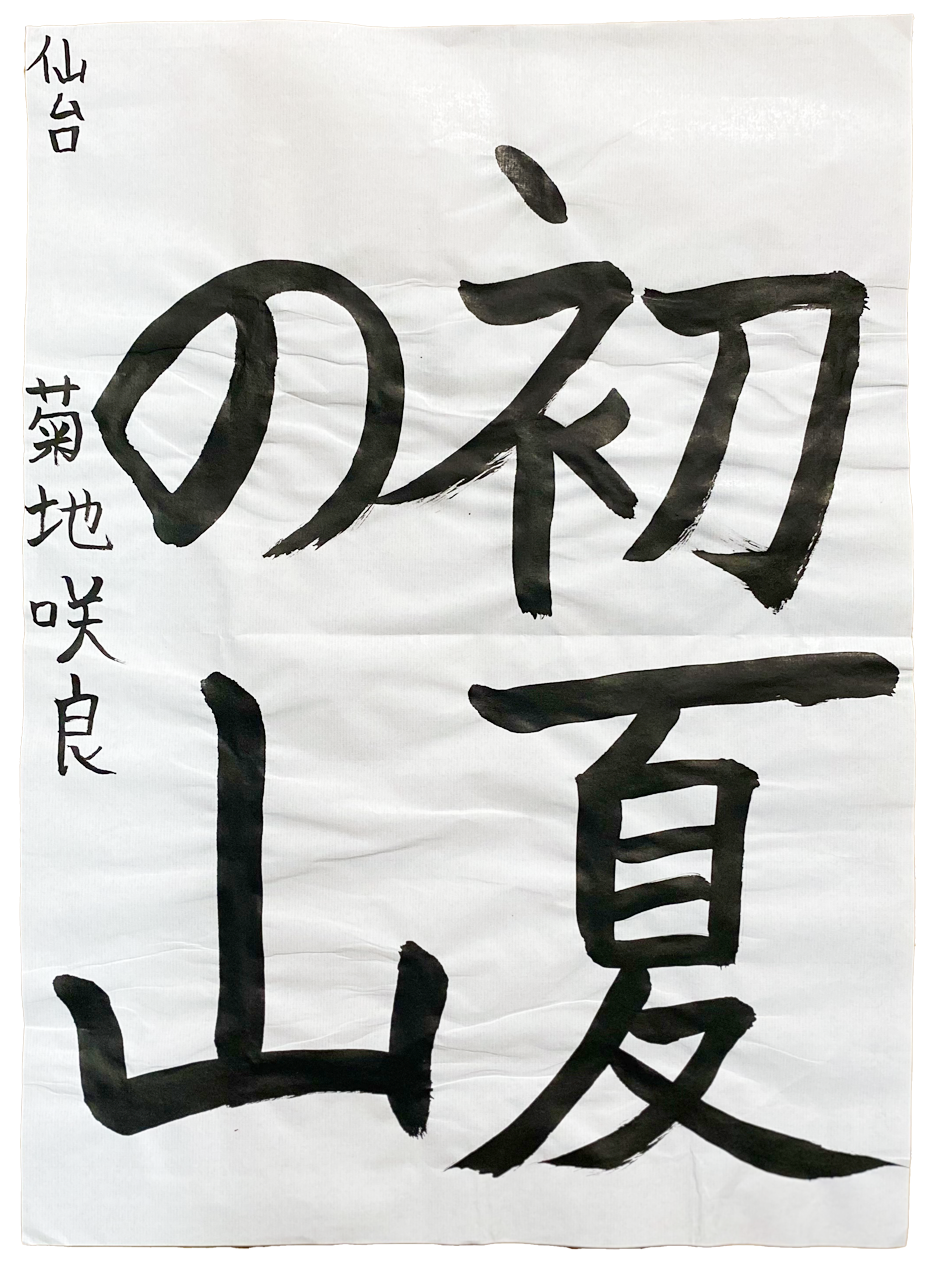 初夏
の山
仙台 菊地咲良